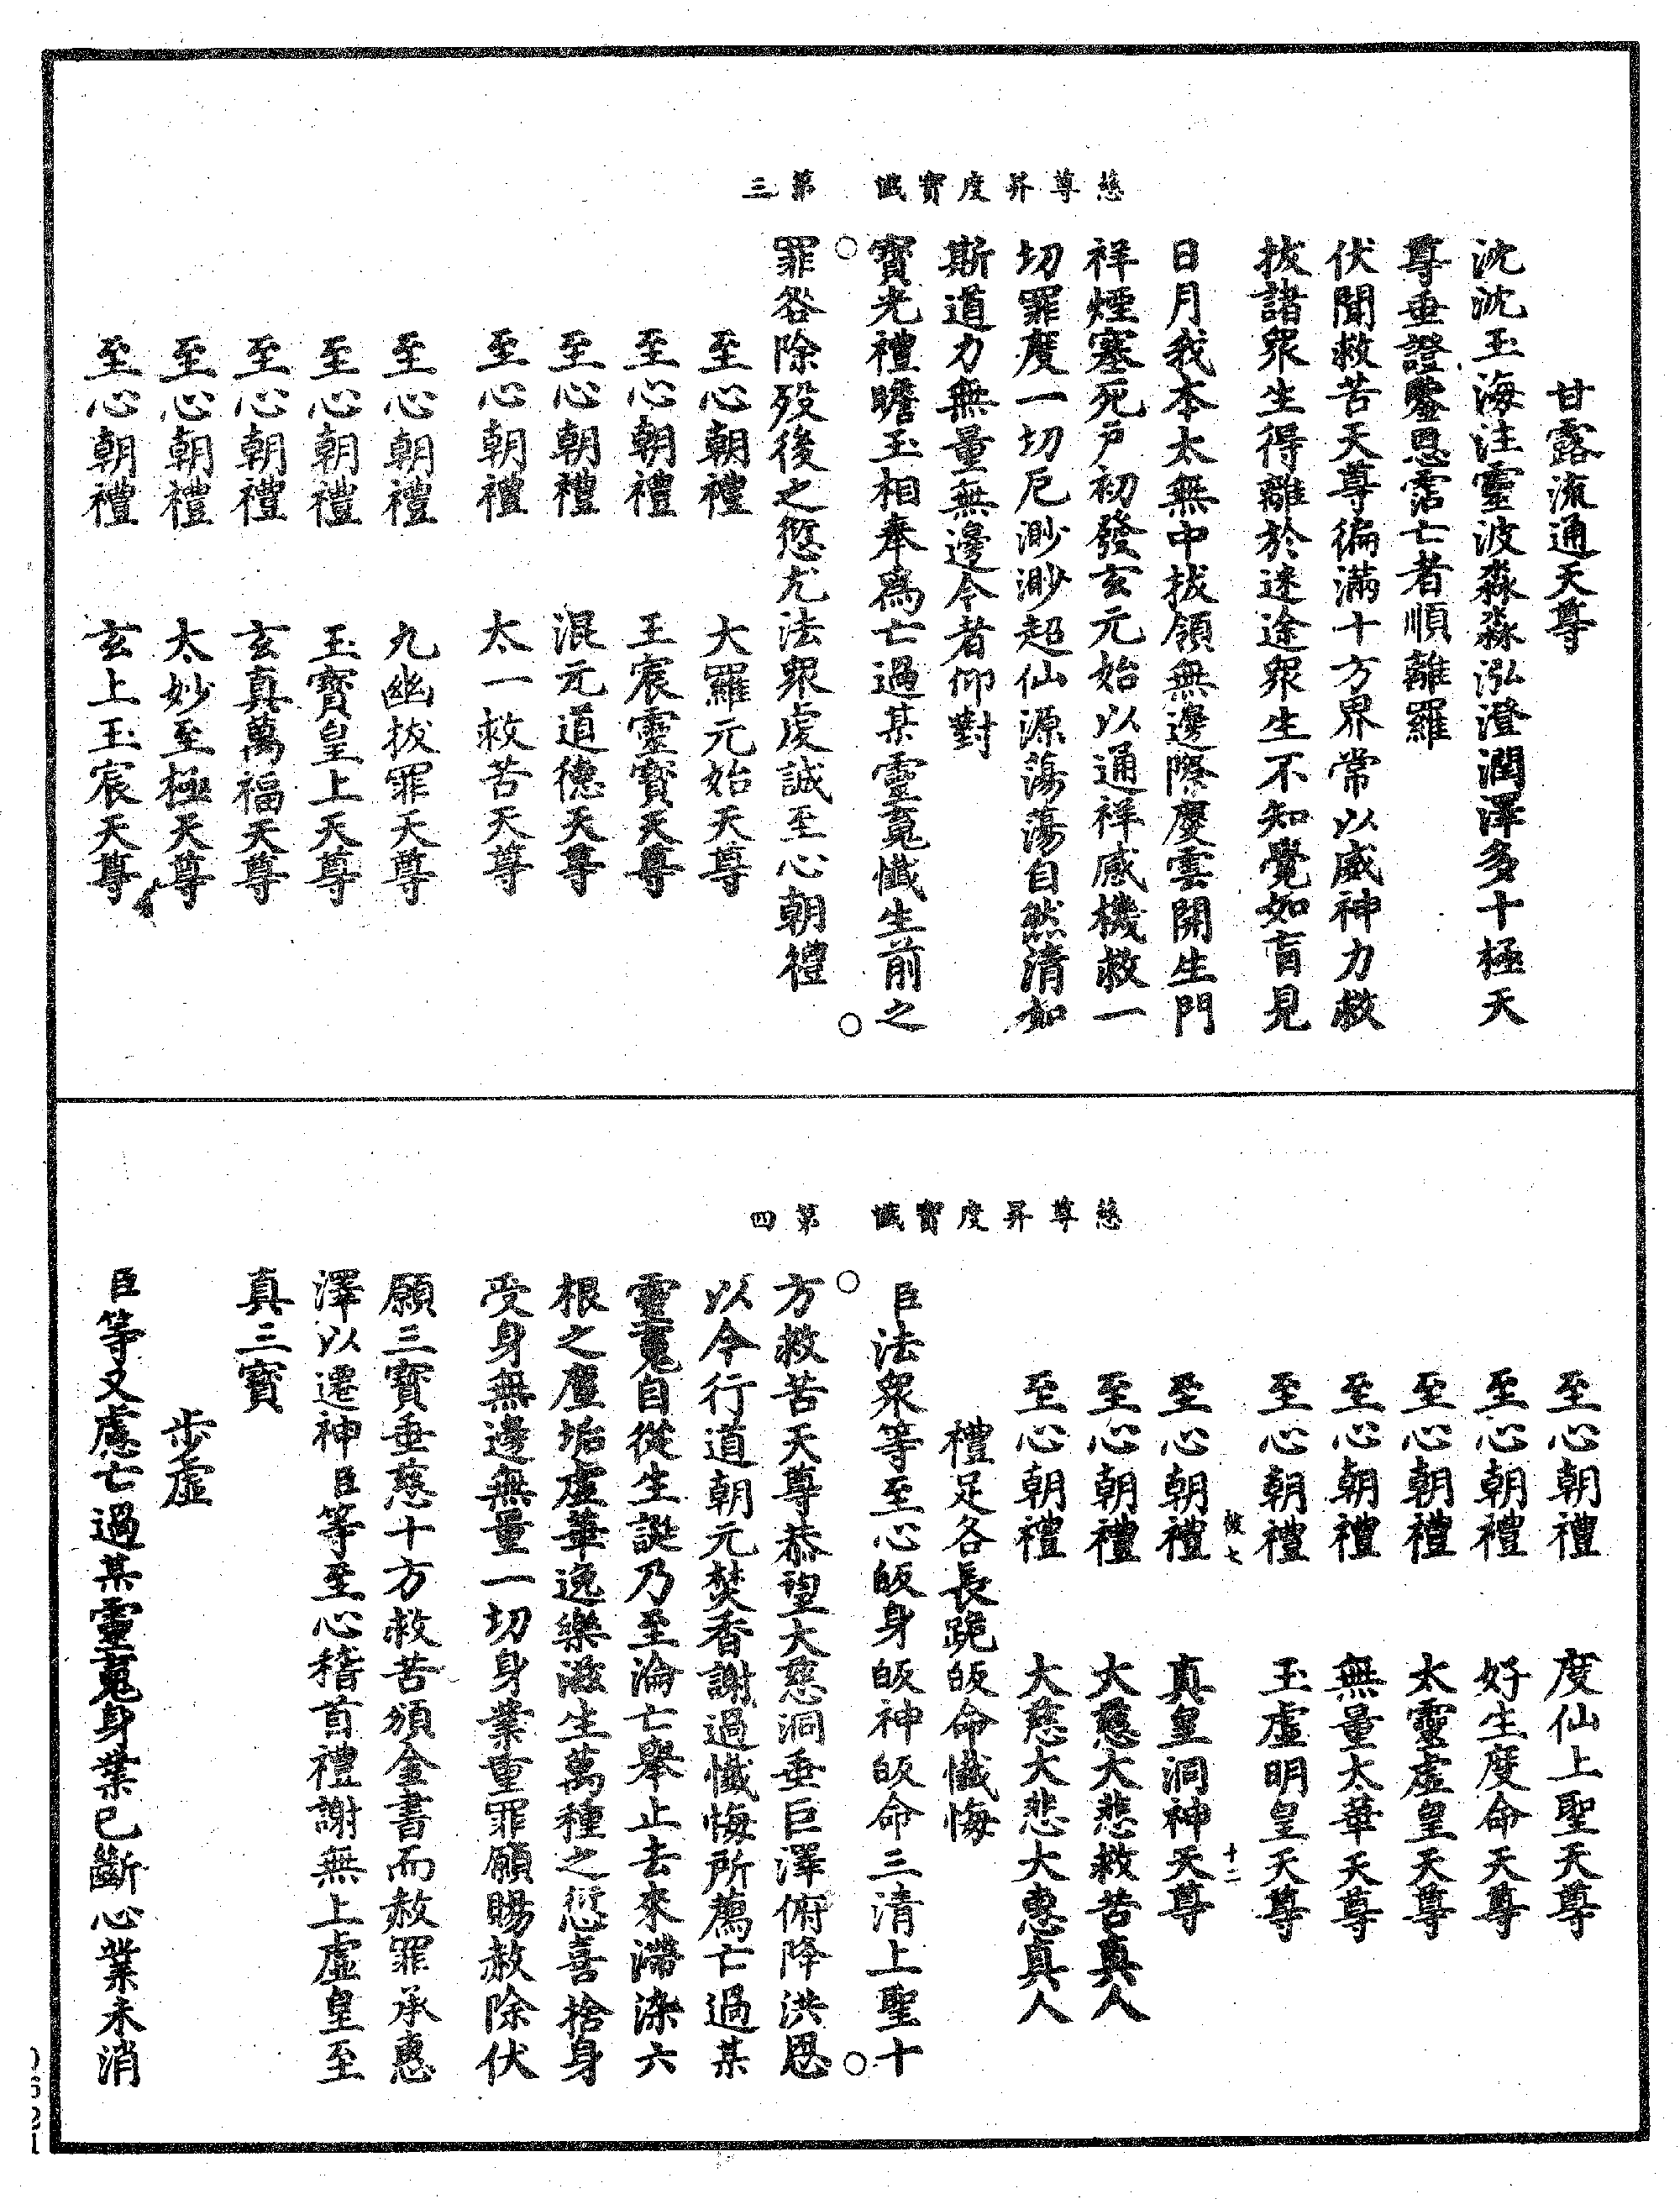 慈尊昇度寶懺　第三
甘露流通天尊
沈沈玉海注靈波淼淼泓澄潤澤多十極天
尊垂證鑒恩霑亡者順離羅
伏聞救苦天尊徧滿十方界常以威神力救
拔諸眾生得離於迷途眾生不知覺如盲見
日月我本太無中拔領無邊際慶雲開生門
祥煙塞死戶初發玄元始以通祥感機救一
切罪度一切厄渺渺超仙源蕩蕩自然清如
斯道力無量無邊今者仰對
寶光禮瞻玉相奉為亡過某靈䰟懺生前之
罪咎除歿後之愆尤法眾虔誠至心朝禮
至心朝禮　大羅元始天尊
至心朝禮　玉宸靈寶天尊
至心朝禮　混元道德天尊
至心朝禮　太一救苦天尊
至心朝禮　九幽拔罪天尊
至心朝禮　玉寶皇上天尊
至心朝禮　玄真萬福天尊
至心朝禮　太妙至極天尊
至心朝禮　玄上玉宸天尊
慈尊昇度寶懺　第四
至心朝禮　度仙上聖天尊
至心朝禮　好生度命天尊
至心朝禮　太靈虛皇天尊
至心朝禮　無量太華天尊
至心朝禮　玉虛明皇天尊
七　十二
至心朝禮　真皇洞神天尊
至心朝禮　大慈大悲救苦真人
至心朝禮　大慈大悲大惠真人
禮足各長跪皈命懺悔
臣法眾等至心皈身皈神皈命三清上聖十
方救苦天尊恭望大慈洞垂巨澤俯降洪恩
以今行道朝元焚香謝過懺悔所薦亡過某
靈䰟自從生誕乃至淪亡舉止去來滯染六
根之塵垢虛華逸樂滋生萬種之愆喜捨身
受身無邊無量一切身業重罪願賜赦除伏
願三寶垂慈十方救苦頒金書而赦罪承惠
澤以遷神臣等至心稽首禮謝無上虛皇至
真三寶
步虛
臣等又慮亡過某靈䰟身業已斷心業未消